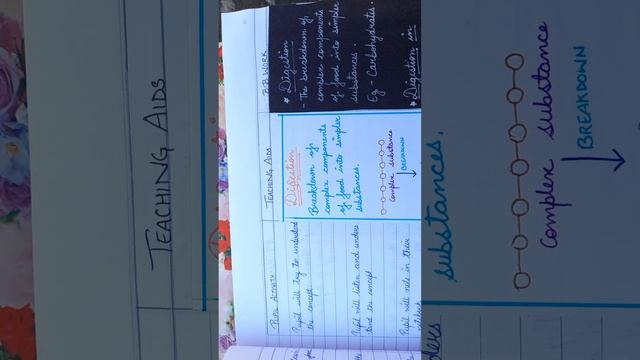 TEACHING AIDS
PUPIL ACTIVITY
Pupil will try to understand
the concept.
Pupil will listen and unders
tand the concept
Pupil will note in their
TEACHING AIDS
Digestion
Breakdown of
complex components
of food into simpler
substances.
complex substance
BREAKDOWN
B.B WORK
* Digestion
- The breakdown of
complex components
of food into simpler
substances.
Eg - Carbohydrates.
* Digestion in
substances.
Complex substance
BREAKDOWN